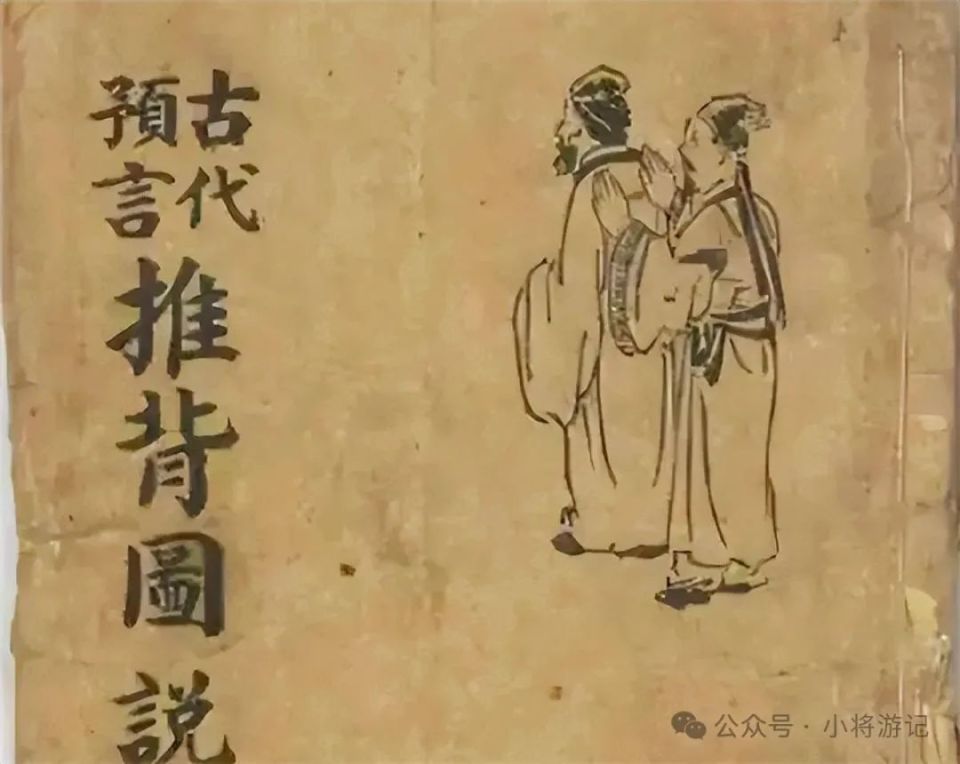 古代
預言
推背圖說
公众号 · 小将游记